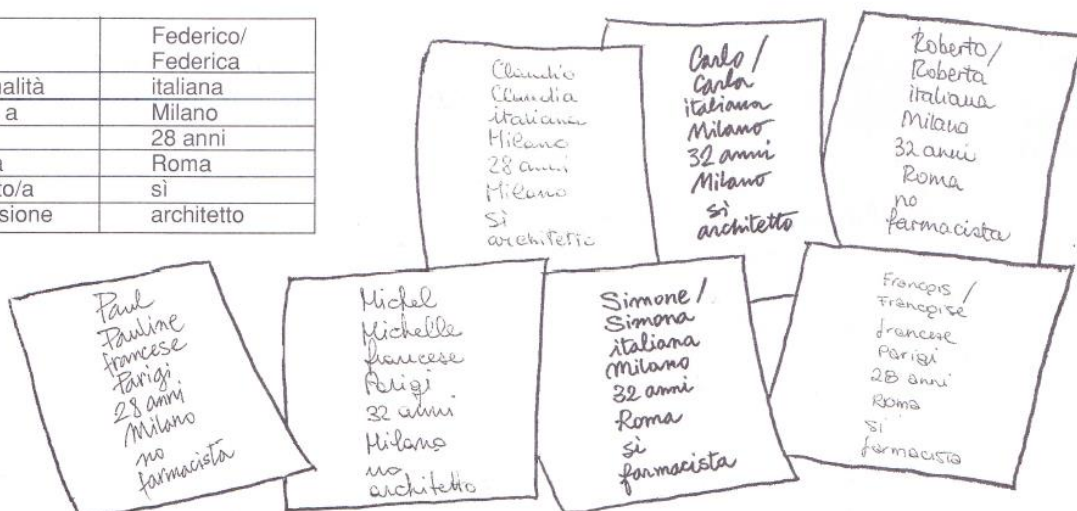 Federico/
Federica
nalità italiana
a Milano
28 anni
a Roma
to/a sì
sione architetto
Claudio
Claudia
italiana
Milano
28 anni
Milano
sì
architetto
Carlo /
Carla
italiana
Milano
32 anni
Milano
sì
architetto
Roberto /
Roberta
italiana
Milano
32 anni
Roma
no
farmacista
Paul
Pauline
francese
Parigi
28 anni
Milano
no
farmacista
Michel
Michelle
francese
Parigi
32 anni
Milano
no
architetto
Simone /
Simona
italiana
Milano
32 anni
Roma
sì
farmacista
François /
Françoise
francese
Parigi
28 anni
Roma
sì
farmacista